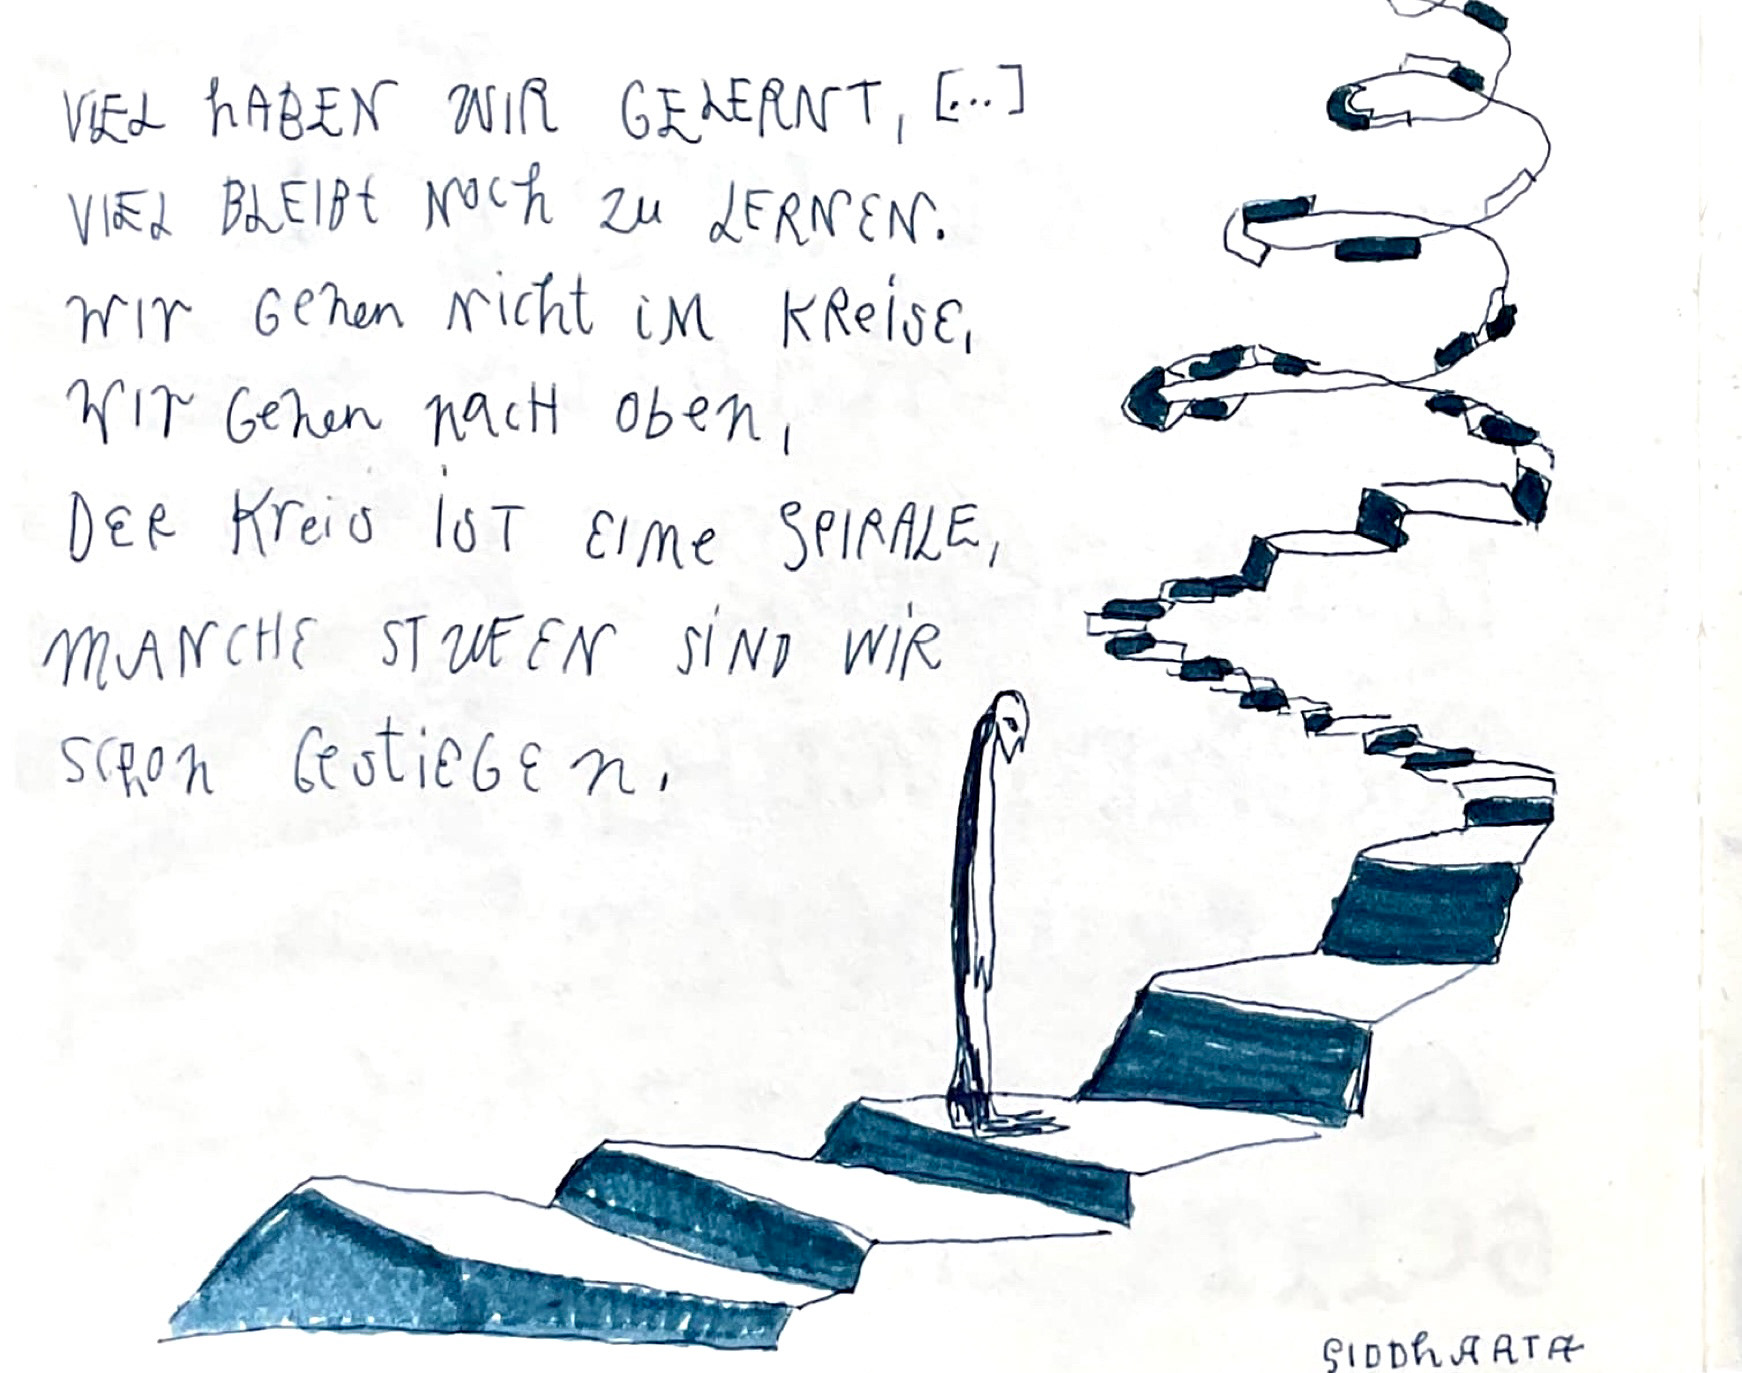 VIEL hABEN WIR GELERNT, [...]
VIEL BLEIBt NOCh ZU LERNEN.
WIr GeheN Nicht iM KReiSE,
WIr Gehen nacH oben,
DER KreiS IST EINe SPIRALE,
MANCHE STUFEN SiND WiR
SChon GeStiEGEn.
SIDDhARTA